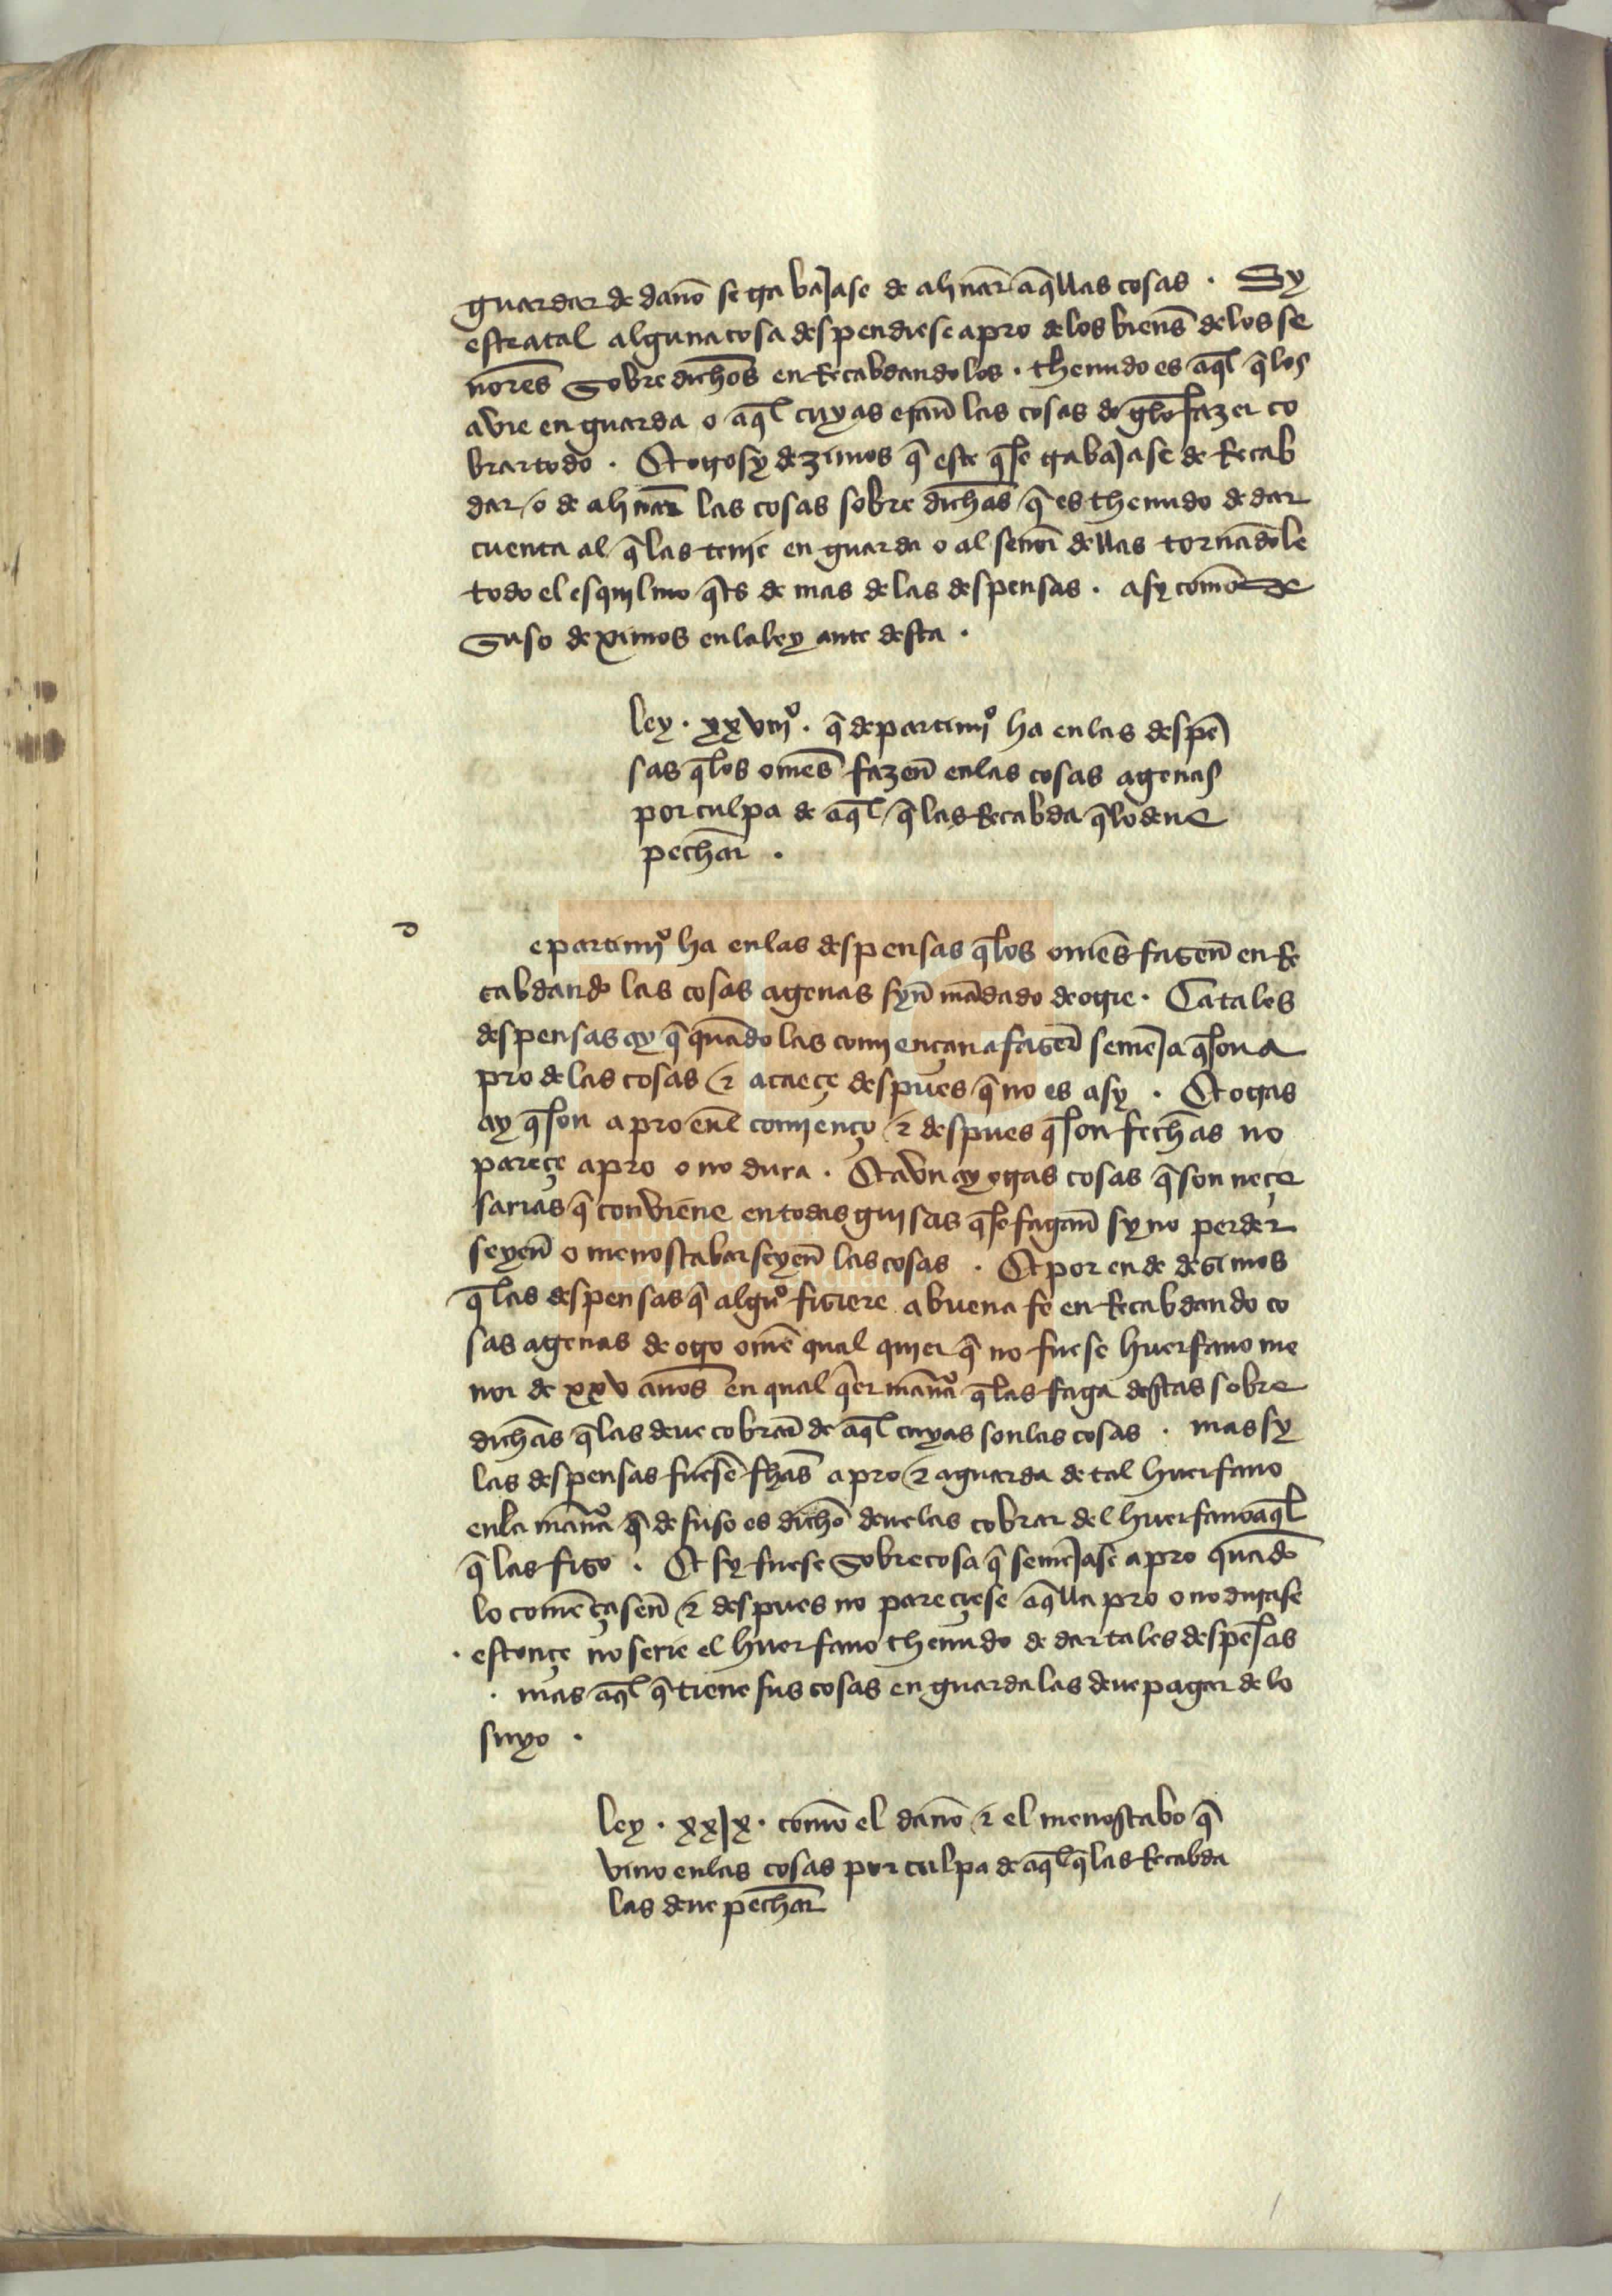 guardar de danõ se trabajase de aliñar aq̃llas cosas . Sy
este atal alguna cosa despendiese a pro de los bienes̃ de los se
nores̃ sobre dichos en Recabdando los . thenudo es aq̃l q̃ los
avie en guarda o aq̃l cuyas erañ las cosas de gelo fazer co
brar todo . Et otrosy dezimos q̃ este q̃ se trabajase de Recab
dar / o de aliñar las cosas sobre dichas / q̃ es thenudo de dar
cuenta al q̃ las tenie en guarda o al señor dellas tornãdole
todo el esquilmo de mas de las despensas . asy como de
suso deximos en la ley ante desta .
ley . xxviijº . q̃ departimjº ha en las despẽ
sas q̃ los omes̃ fazeñ en las cosas agenas
por culpa de aq̃l / q̃ las Recabda q̃ lo deue
pechar .
d
epartimjº ha en las despensas q̃ los omes̃ fazeñ en Re
cabdando las cosas agenas syñ mãdado de otrie . Ca tales
despensas ay q̃ quãdo las comiençan a fazer semẽja q̃ son a
pro de las cosas & acaeçe despues q̃ no es asy . Et otras
ay q̃ son a pro enl comienço & despues q̃ son fechas no
pareçe a pro o no dura . Et avn ay otras cosas q̃ son neçe
sarias q̃ conviene en todas guisas q̃ se fagañ sy no perder
seyeñ o menoscabar seyeñ las cosas . Et por ende dezimos
q̃ las despensas q̃ algũº fiziere a buena fe en Recabdando co
sas agenas de otro omẽ qual quier q̃ no fuese huerfano me
nor de xxv anõs en qual q̃er manª q̃ las faga destas sobre
dichas q̃ las deue cobrar de aq̃l cuyas son las cosas . mas sy
las despensas fuesẽ fhas a pro & a guarda de tal huerfano
en la manª q̃ de suso es dicho deue las cobrar del huerfano aq̃l
q̃ las fizo . Et sy fuese sobre cosa q̃ semẽjase a pro quãdo
lo comẽçaseñ & despues no pareçiese aq̃lla pro o no durase
. estonçe no serie el huerfano thenudo de dar tales despẽsas
. mas aq̃l q̃ tiene sus cosas en guarda las deue pagar de lo
suyo .
ley . xxjx . como el danõ & el menoscabo q̃
vino en las cosas por culpa de aq̃l q̃ las Recabda
las deue pechar